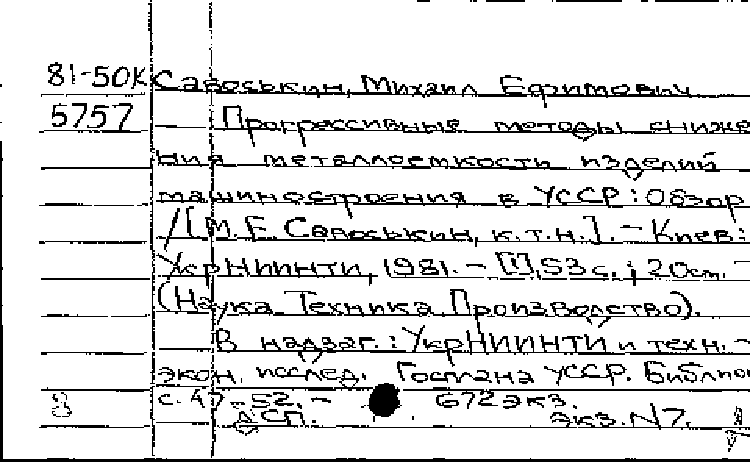 81-50К Савоськин, Михаил Ефимович
5757 Прогрессивные методы сниже
ния металлоемкости изделий
машиностроения в УССР: Обзор
/[М.Е. Савоськин, к.т.н.]. - Киев:
УкрНИИНТИ, 1981. - [1], 53 с.; 20 см. -
(Наука. Техника. Производство).
В надзаг.: УкрНИИНТИ и техн. -
экон. исслед. Госплана УССР. Библиог
с. 47-52. - 672 экз.
СП. экз. N7.